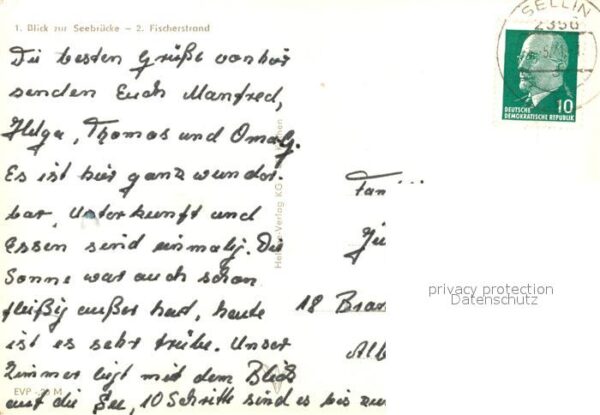 1. Blick zur Seebrücke – 2. Fischerstrand
Die besten Grüße von hier
senden Euch Manfred,
Helga, Thomas und Oma G.
Es ist hier ganz wunder-
bar, Unterkunft und
Essen sind einmalig. Die
Sonne war auch schon
fleißig außer heut, heute
ist es sehr trübe. Unser
Zimmer liegt mit dem Blick
auf die See, 10 Schritte sind es bis zu
EVP -,20 M
Verlag KG
SELLIN
2356
DEUTSCHE
DEMOKRATISCHE REPUBLIK
10
Fam
18
Alb
privacy protection
Datenschutz